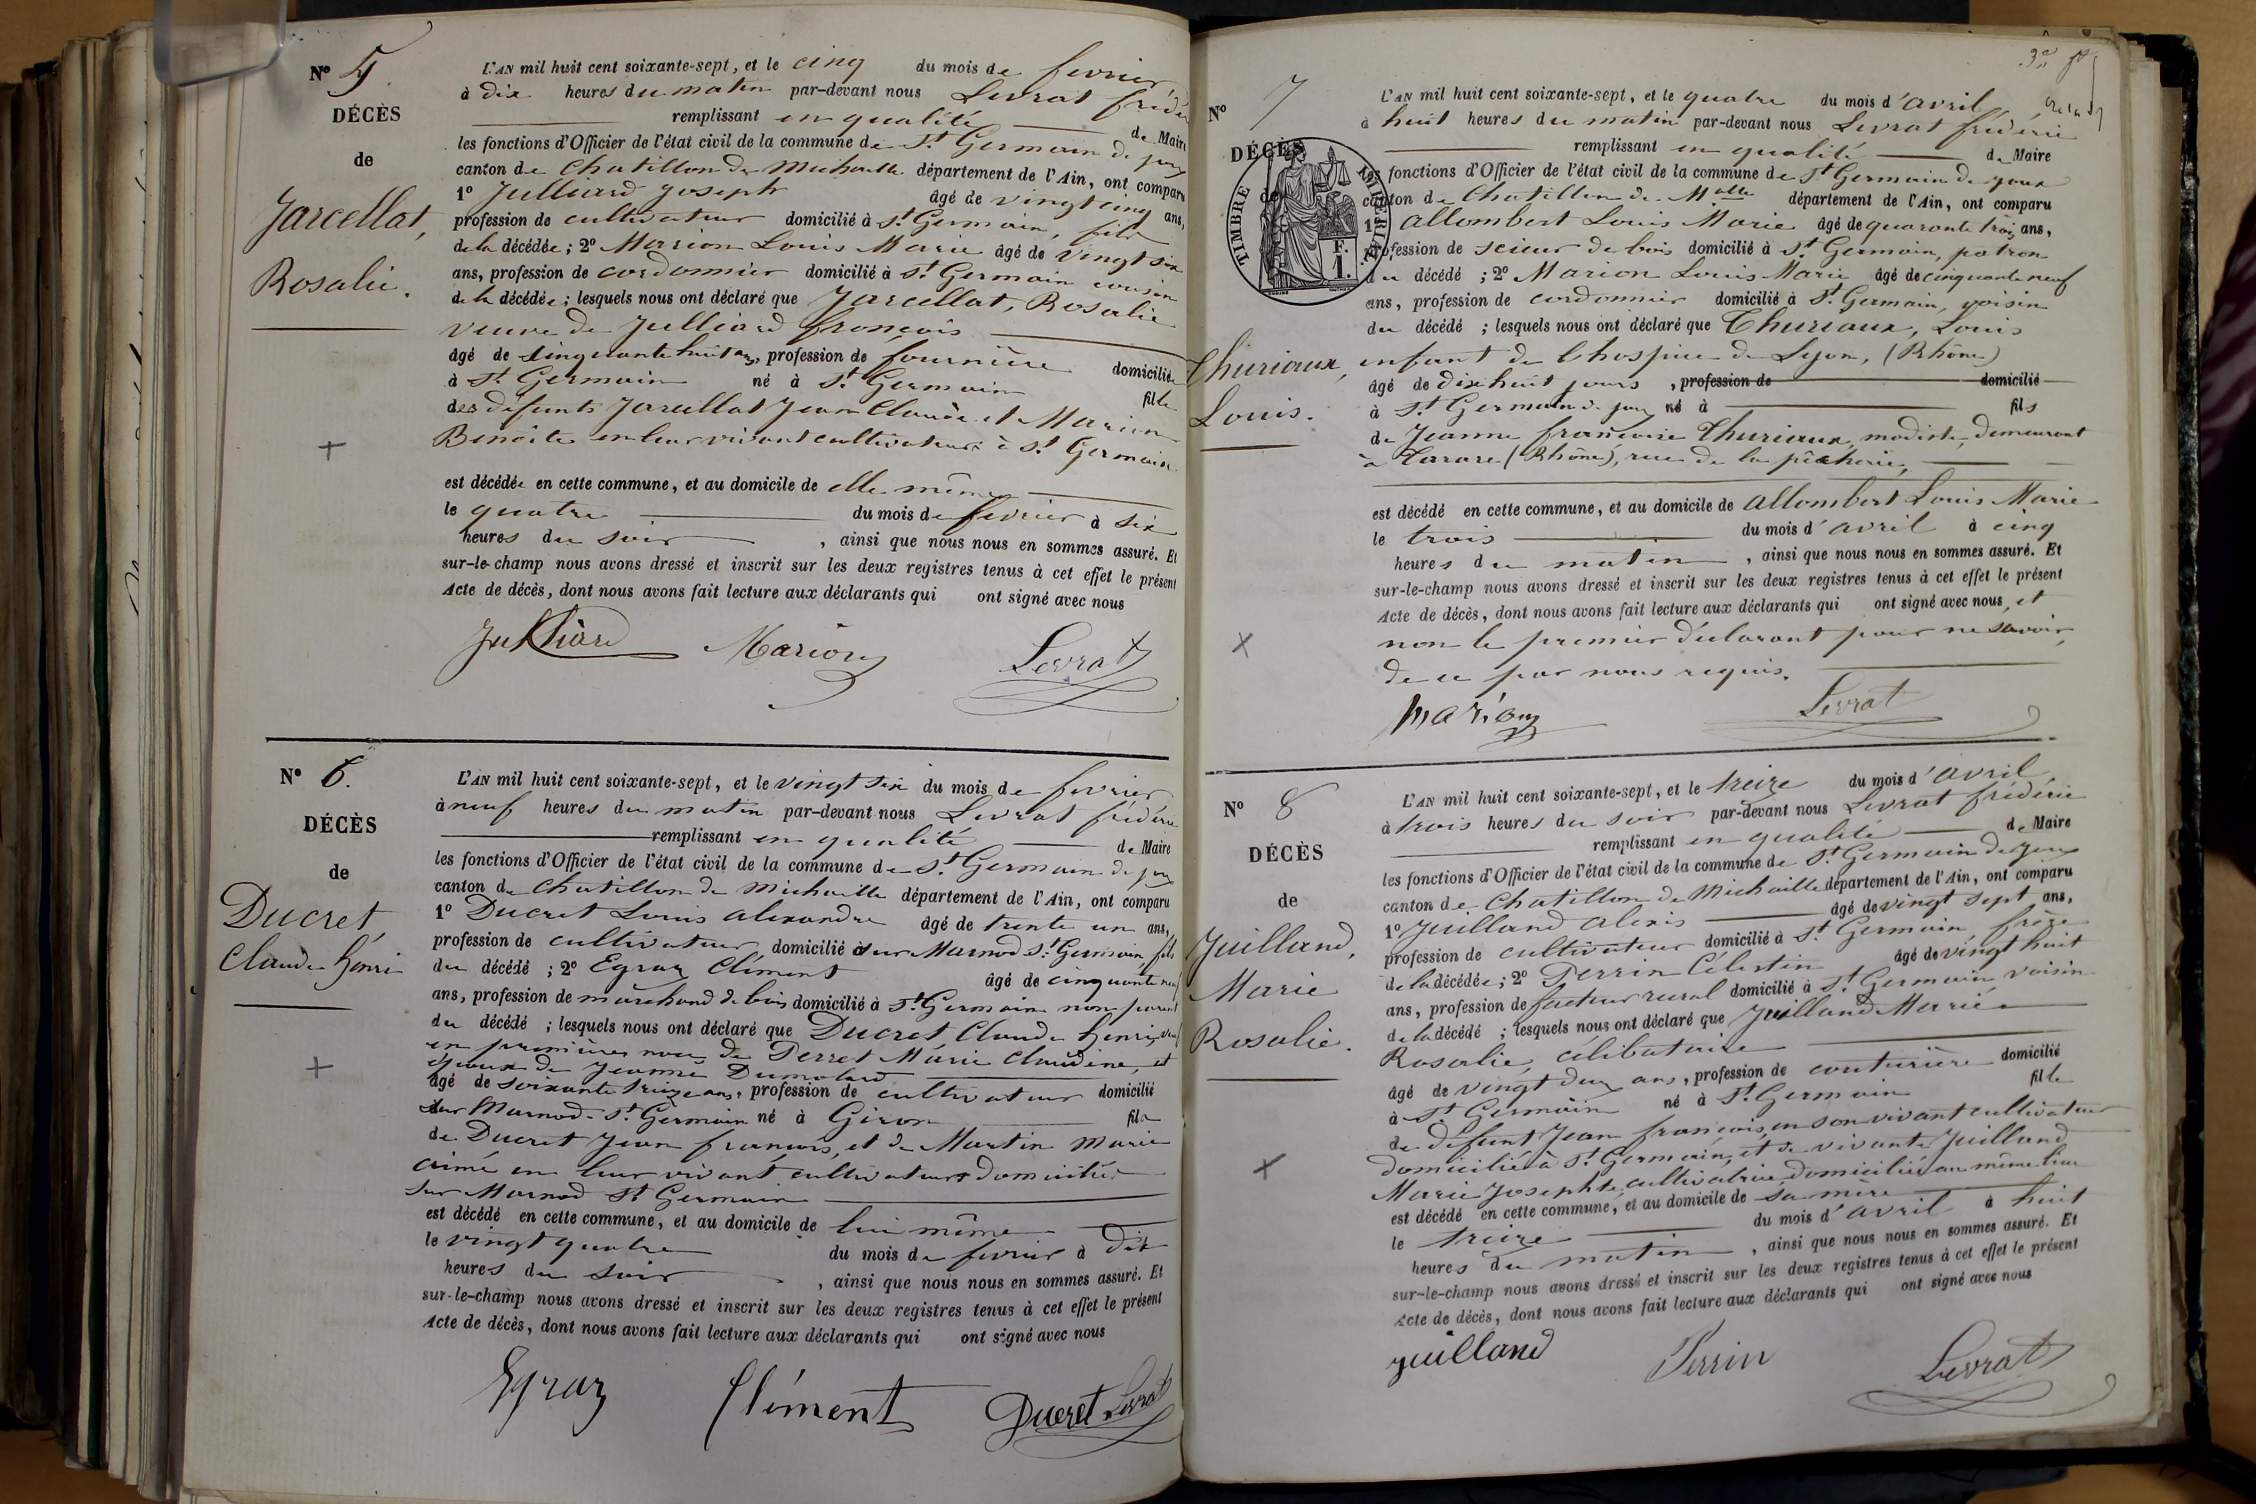 Nº 5.
DÉCÈS
de
Jarcellat,
Rosalie.
L'AN mil huit cent soixante-sept, et le cinq du mois de fevrier
à dix heures du matin par-devant nous Levrat frédé
remplissant en qualité de Maire
les fonctions d'Officier de l'état civil de la commune de St Germain de joux
canton de Chatillon de Michaille département de l'Ain, ont comparu
1º Julliard Joseph âgé de vingt cinq ans,
profession de cultivateur domicilié à St Germain, fils
de la décédée ; 2º Marion Louis Marie âgé de vingt six
ans, profession de cordonnier domicilié à St Germain cousin
de la décédée ; lesquels nous ont déclaré que Jarcellat, Rosalie
veuve de Julliard françois
âgé de cinquante huit ans, profession de fournière domiciliée
à St Germain né à St Germain fille
des defunts Jarcellat Jean Claude et Marion
Benoite en leur vivant cultivateurs à St Germain
est décédée en cette commune, et au domicile de elle même
le quatre du mois de fevrier à six
heures du soir , ainsi que nous nous en sommes assuré. Et
sur-le-champ nous avons dressé et inscrit sur les deux registres tenus à cet effet le présent
Acte de décès, dont nous avons fait lecture aux déclarants qui ont signé avec nous
Julliard Marion Levrat
Nº 6.
DÉCÈS
de
Ducret,
Claude henri
L'AN mil huit cent soixante-sept, et le vingt six du mois de fevrier
à neuf heures du matin par-devant nous Levrat fréderic
remplissant en qualité de Maire
les fonctions d'Officier de l'état civil de la commune de St Germain de joux
canton de Chatillon de Michaille département de l'Ain, ont comparu
1º Ducret Louis alexandre âgé de trente un ans,
profession de cultivateur domicilié à sur Marnod St Germain fils
du décédé ; 2º Egraz Clément âgé de cinquante neuf
ans, profession de marchand de bois domicilié à St Germain non parent
du décédé ; lesquels nous ont déclaré que Ducret Claude henri, veuf
en premières noces de Perret Marie Claudine, et
époux de Jeanne Dumolard
âgé de soixante treize ans, profession de cultivateur domicilié
sur Marnod St Germain né à Giron fils
de Ducret Jean françois, et de Martin Marie
aimé en leur vivant cultivateurs domiciliés
sur Marnod St Germain
est décédé en cette commune, et au domicile de lui même
le vingt quatre du mois de fevrier à Dix
heures du soir , ainsi que nous nous en sommes assuré. Et
sur-le-champ nous avons dressé et inscrit sur les deux registres tenus à cet effet le présent
Acte de décès, dont nous avons fait lecture aux déclarants qui ont signé avec nous
Egraz Clément Ducret Levrat
Nº 7
DÉCÈS
de
TIMBRE IMPÉRIAL
F.
1.
Thuriaux,
Louis.
L'AN mil huit cent soixante-sept, et le quatre du mois d'avril
à huit heures du matin par-devant nous Levrat fréderic
remplissant en qualité de Maire
les fonctions d'Officier de l'état civil de la commune de St Germain de joux
canton de Chatillon de Mlle département de l'Ain, ont comparu
1º allombert Louis Marie âgé de quarante trois ans,
profession de scieur de bois domicilié à St Germain, patron
du décédé ; 2º Marion Louis Marie âgé de cinquante neuf
ans, profession de cordonnier domicilié à St Germain, voisin
du décédé ; lesquels nous ont déclaré que Thuriaux, Louis
enfant de l'hospice de Lyon, (Rhône)
âgé de dix huit jours , profession de domicilié
à St Germain de joux né à fils
de Jeanne françoise Thuriaux, modiste, demeurant
à Tarare (Rhône), rue de la pêcherie,
est décédé en cette commune, et au domicile de allombert Louis Marie
le trois du mois d'avril à cinq
heures du matin , ainsi que nous nous en sommes assuré. Et
sur-le-champ nous avons dressé et inscrit sur les deux registres tenus à cet effet le présent
Acte de décès, dont nous avons fait lecture aux déclarants qui ont signé avec nous, et
non le premier déclarant pour ne savoir,
de ce par nous requis.
Marion Levrat
Nº 8
DÉCÈS
de
Juilland,
Marie
Rosalie.
L'AN mil huit cent soixante-sept, et le treize du mois d'avril
à trois heures du soir par-devant nous Levrat fréderic
remplissant en qualité de Maire
les fonctions d'Officier de l'état civil de la commune de St Germain de joux
canton de Chatillon de Michaille département de l'Ain, ont comparu
1º Juilland alexis âgé de vingt sept ans,
profession de cultivateur domicilié à St Germain, frère
de la décédée ; 2º Perrin Célestin âgé de vingt huit
ans, profession de facteur rural domicilié à St Germain, voisin
de la décédé ; lesquels nous ont déclaré que Juilland Marie
Rosalie, célibataire
âgé de vingt deux ans, profession de couturière domicilié
à St Germain né à St Germain fille
de défunt Jean françois, en son vivant cultivateur
domicilié à St Germain, et de vivante Juilland
Marie Josephte, cultivatrice domiciliée au même lieu
est décédé en cette commune, et au domicile de sa mère
le treize du mois d'avril à huit
heures du matin , ainsi que nous nous en sommes assuré. Et
sur-le-champ nous avons dressé et inscrit sur les deux registres tenus à cet effet le présent
Acte de décès, dont nous avons fait lecture aux déclarants qui ont signé avec nous
Juilland Perrin Levrat